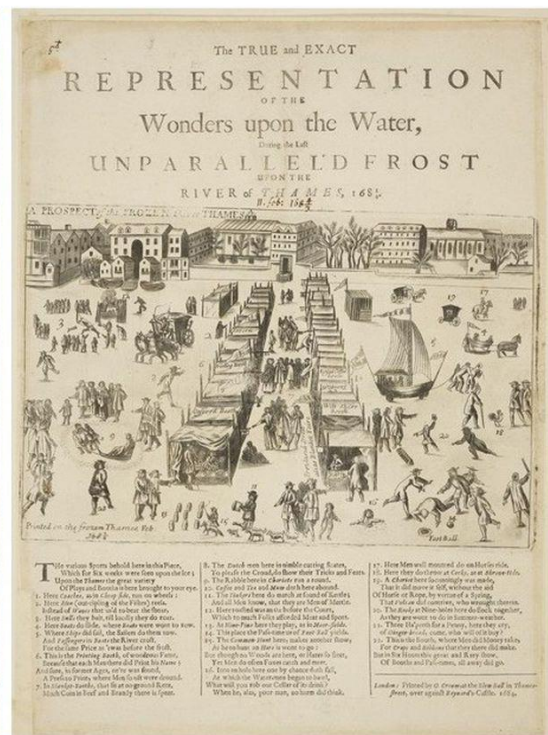 The TRUE and EXACT
REPRESENTATION
OF THE
Wonders upon the Water,
During the Last
UNPARALLEL'D FROST
UPON THE
RIVER of THAMES, 168¾.
A PROSPECT of the FROZEN THAMES
Printed on the frozen Thames Feb.
Foot Ball
THe various Sports behold here in this Piece,
Which for Six weeks were seen upon the Ice;
Upon the Thames the great variety
Of Plays and Booths is here brought to your eye.
1. Here Coaches, as in Cheap-side, run on wheels;
2. Here Men (out-tipling of the Fishes) reels.
Instead of Waves that us'd to beat the shore,
3. Here Bulls they bait, till loudly they do roar.
4. Here Boats do slide, where Boats were wont to row.
5. Where Ships did sail, the Sailors do them tow.
And Passengers in Boats the River cross,
For the same Price as 'twas before the frost.
6. This is the Printing Booth, of wondrous Fame,
Because that each Man there did Print his Name;
And sure, in former Ages, ne're was found,
A Press to Print, where Men so oft were dround.
Much Coin in Beef and Brandy there is spent.
8. The Dutch men here in nimble cutting Scates,
To please the Crowd, do show their Tricks and Feats.
9. The Rabble here in Chariots run around.
10. Coffee and Tea and Mum doth here abound.
11. The Hockers here do march at sound of Kettle;
And all Men know, that they are Men of Mettle.
12. Here roasted was an Ox before the Court,
Which to much Folks afforded Meat and Sport.
13. At Nine Pins here they play, as in Moor-fields.
14. This place the Past-time of us Foot Ball yields.
15. The Common Hunt here makes another show,
As he to hunt an Hare is wont to go:
But though no Woods are here, or Hares so fleet,
Yet Men do often Foxes catch and meet.
16. Into an hole here one by chance doth fall,
At which the Watermen began to bawl,
What will you rob our Cellar of its drink?
When he, alas, poor man, no harm did think.
17. Here Men well mounted do on Horses ride.
18. Here they do throw at Cocks, as at Shrove-tide.
19. A Chariot here so cunningly was made,
That it did move it self, without the aid
Of Horse or Rope, by virtue of a Spring,
20. The Rooks at Nine-holes here do flock together,
As they are wont to do in Summer-weather.
21. Three Ha'porth for a Penny, here they cry,
of Ginger-bread, come, who will it buy?
22. This is the Booth, where Men did Money take,
For Crape and Ribbons that they there did make.
But in Six Hours this great and Rary show,
Of Booths and Pastimes, all away did go.
London: Printed by G. Croom at the Blew-Ball in Thames-
street, over against Baynard's-Castle. 1684.